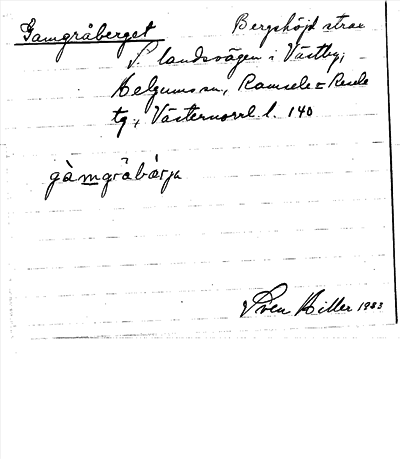 Gamgråberget Bergshöjd strax
S. landsvägen i Västby,
Helgums sn, Ramsele = Resele
tg, Västernorrl. l. 140
gàmgråbàrjə
Sven Hiller 1933